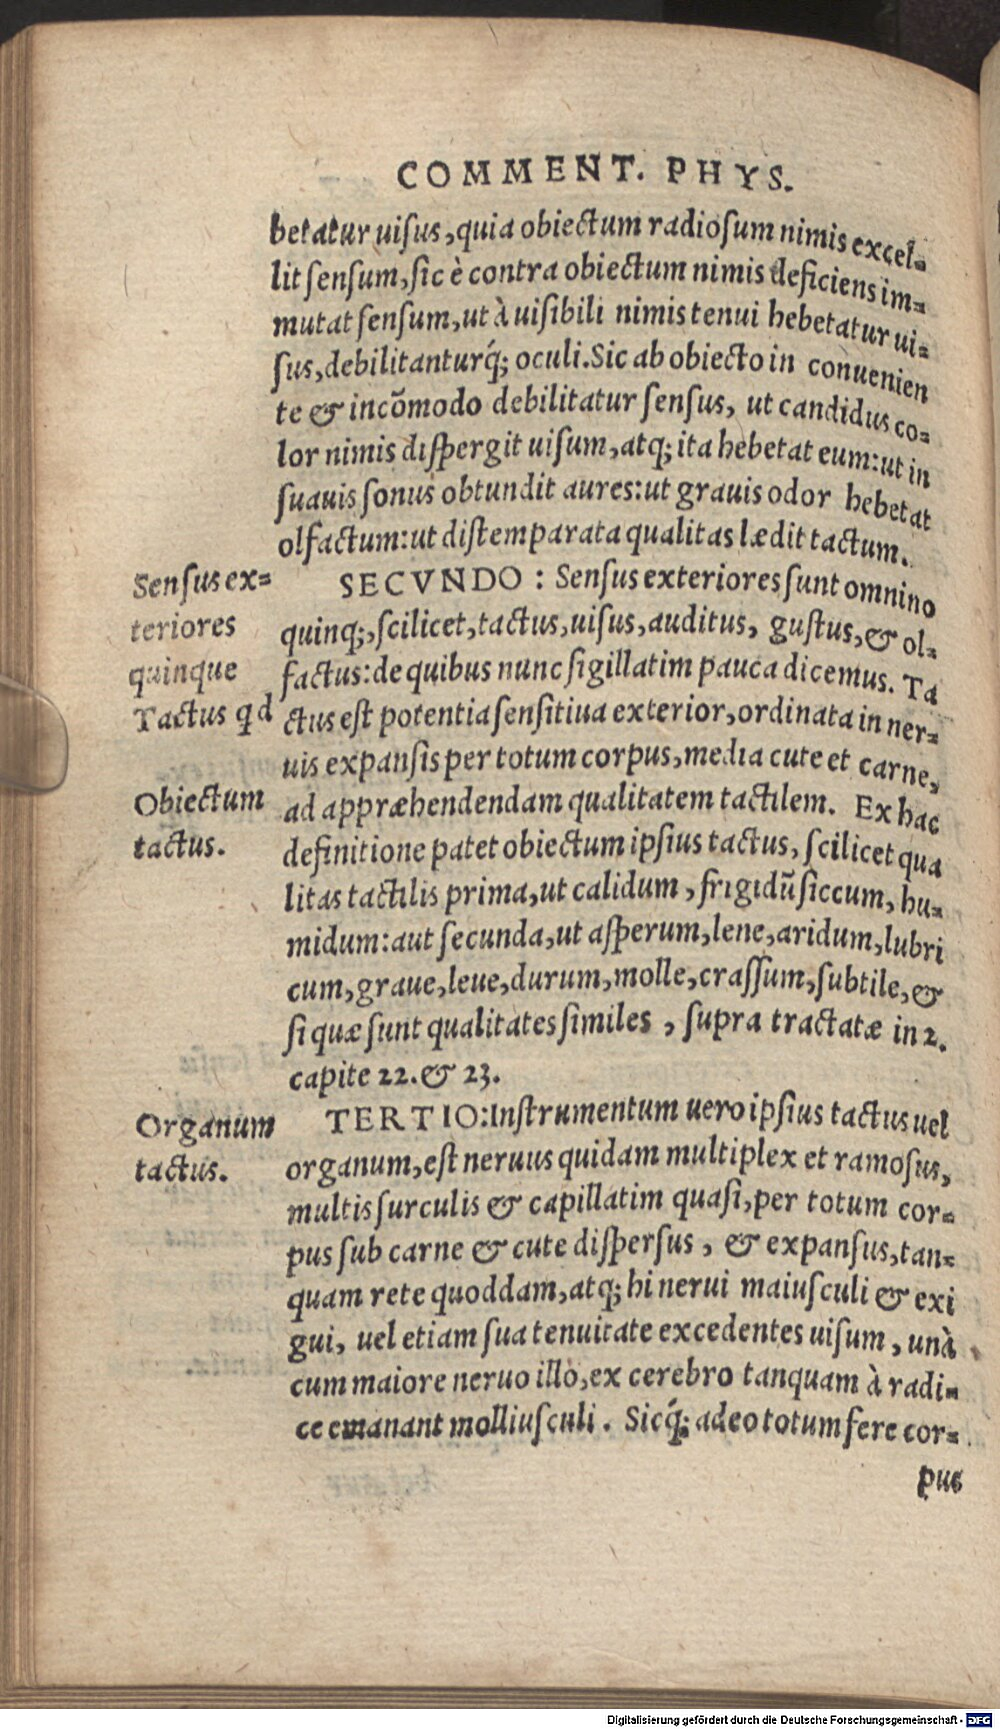 COMMENT. PHYS.
betatur uisus, quia obiectum radiosum nimis excel-
lit sensum, sic è contra obiectum nimis deficiens im-
mutat sensum, ut à uisibili nimis tenui hebetatur ui-
sus, debilitanturq́; oculi. Sic ab obiecto in conuenien
te & incōmodo debilitatur sensus, ut candidus co-
lor nimis dispergit uisum, atq; ita hebetat eum: ut in
suauis sonus obtundit aures: ut grauis odor hebetat
olfactum: ut distemparata qualitas lædit tactum.
Sensus ex-
teriores
quinque
SECVNDO: Sensus exteriores sunt omnino
quinq;, scilicet, tactus, uisus, auditus, gustus, & ol-
factus: de quibus nunc sigillatim pauca dicemus. Ta
Tactus qd
ctus est potentia sensitiua exterior, ordinata in ner-
uis expansis per totum corpus, media cute et carne,
Obiectum
tactus.
ad appræhendendam qualitatem tactilem. Ex hac
definitione patet obiectum ipsius tactus, scilicet qua
litas tactilis prima, ut calidum, frigidū siccum, hu-
midum: aut secunda, ut asperum, lene, aridum, lubri
cum, graue, leue, durum, molle, crassum, subtile, &
si quæ sunt qualitates similes, supra tractatæ in 2.
capite 22. & 23.
Organum
tactus.
TERTIO: Instrumentum uero ipsius tactus uel
organum, est neruus quidam multiplex et ramosus,
multis surculis & capillatim quasi, per totum cor-
pus sub carne & cute dispersus, & expansus, tan-
quam rete quoddam, atq; hi nerui maiusculi & exi
gui, uel etiam sua tenuitate excedentes uisum, unà
cum maiore neruo illo, ex cerebro tanquam à radi-
ce emanant molliusculi. Sicq́; adeo totum fere cor-
pus
Digitalisierung gefördert durch die Deutsche Forschungsgemeinschaft - DFG